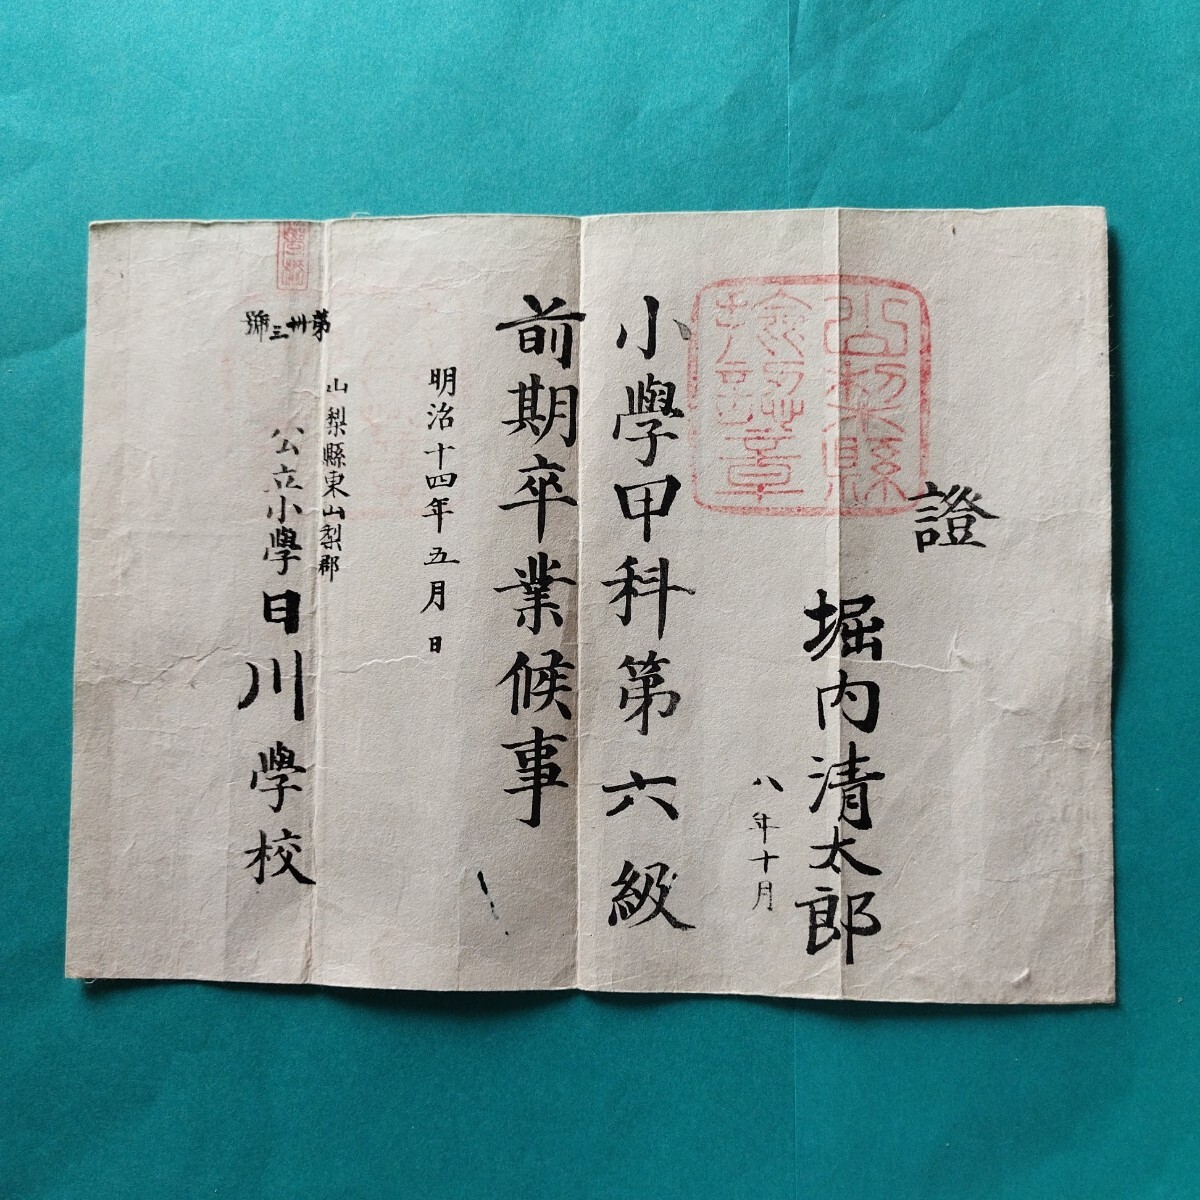 證
堀内清太郎
八年十月
小學甲科第六級
前期卒業候事
明治十四年五月 日
山梨縣東山梨郡
公立小學日川學校
第卅三號
山梨縣
檢認章